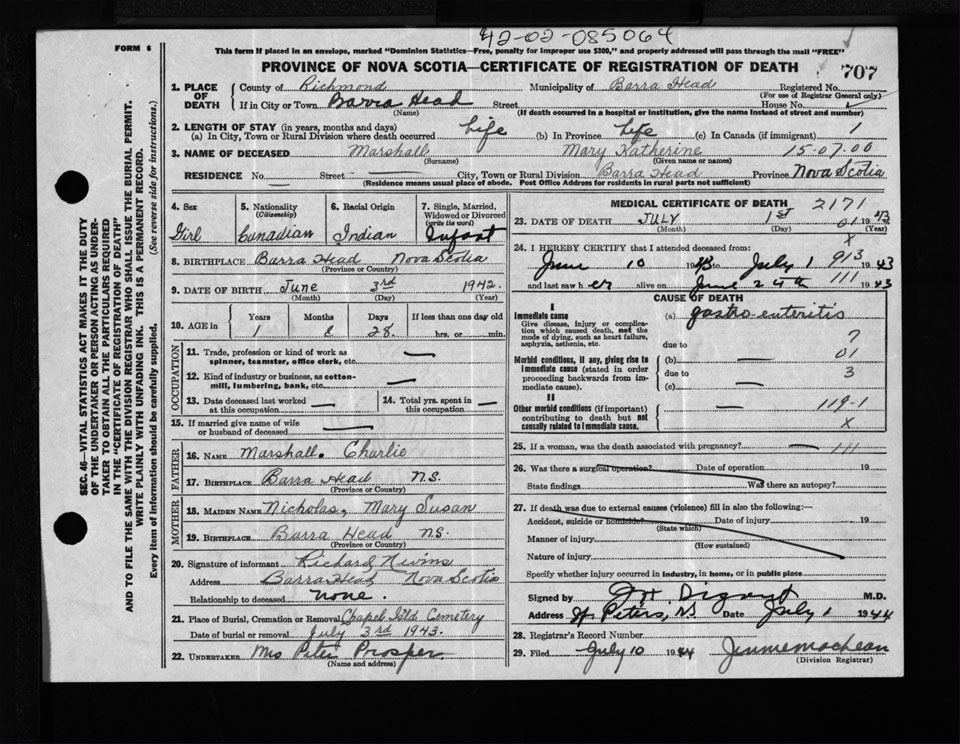 42-02-085064
FORM 6
This form if placed in an envelope, marked "Dominion Statistics—Free, penalty for improper use $300," and properly addressed will pass through the mail "FREE"
PROVINCE OF NOVA SCOTIA—CERTIFICATE OF REGISTRATION OF DEATH
707
1. PLACE OF DEATH
County of Richmond Municipality of Barra Head Registered No.
(For use of Registrar General only)
If in City or Town Barra Head Street House No.
(Name) (If death occurred in a hospital or institution, give the name instead of street and number)
2. LENGTH OF STAY (in years, months and days)
(a) In City, Town or Rural Division where death occurred Life (b) In Province Life (c) In Canada (if immigrant) 1
3. NAME OF DECEASED Marshall Mary Katherine 15-07.00
(Surname) (Given name or names)
RESIDENCE No. — Street — City, Town or Rural Division Barra Head Province Nova Scotia
(Residence means usual place of abode. Post Office Address for residents in rural parts not sufficient)
SEC. 46—VITAL STATISTICS ACT MAKES IT THE DUTY
OF THE UNDERTAKER OR PERSON ACTING AS UNDER-
TAKER TO OBTAIN ALL THE PARTICULARS REQUIRED
IN THE "CERTIFICATE OF REGISTRATION OF DEATH"
AND TO FILE THE SAME WITH THE DIVISION REGISTRAR WHO SHALL ISSUE THE BURIAL PERMIT.
WRITE PLAINLY WITH UNFADING INK. THIS IS A PERMANENT RECORD.
Every item of Information should be carefully supplied. (See reverse side for instructions.)
4. Sex
Girl
5. Nationality
(Citizenship)
Canadian
6. Racial Origin
Indian
7. Single, Married,
Widowed or Divorced
(write the word)
Infant
8. BIRTHPLACE Barra Head Nova Scotia
(Province or Country)
9. DATE OF BIRTH June 3rd 1942.
(Month) (Day) (Year)
10. AGE in
Years Months Days If less than one day old
1 28. hrs. or min.
OCCUPATION
11. Trade, profession or kind of work as
spinner, teamster, office clerk, etc. —
12. Kind of industry or business, as cotton-
mill, lumbering, bank, etc. —
13. Date deceased last worked
at this occupation —
14. Total yrs. spent in
this occupation —
15. If married give name of wife
or husband of deceased —
FATHER
16. NAME Marshall. Charlie
17. BIRTHPLACE Barra Head N.S.
(Province or Country)
MOTHER
18. MAIDEN NAME Nicholas, Mary Susan
19. BIRTHPLACE Barra Head N.S.
(Province or Country)
20. Signature of informant Richard Nevins
Address Barra Head Nova Scotia
Relationship to deceased none.
21. Place of Burial, Cremation or Removal Chapel Isld Cemetery
Date of burial or removal July 3rd 1943.
22. UNDERTAKER Mrs Peter Prosper.
(Name and address)
MEDICAL CERTIFICATE OF DEATH 2171
23. DATE OF DEATH JULY 1st 01 1943
(Month) (Day) (Year)
X
24. I HEREBY CERTIFY that I attended deceased from:
June 10 1943 July 1 913 1943
and last saw her alive on June 24th 111 1943
CAUSE OF DEATH
I
Immediate cause
Give disease, injury or complica-
tion which caused death, not the
mode of dying, such as heart failure,
asphyxia, asthenia, etc.
(a) gastro-enteritis
due to 7
Morbid conditions, if any, giving rise to
immediate cause (stated in order
proceeding backwards from im-
mediate cause).
(b) — 01
due to 3
(c) —
II
Other morbid conditions (if important)
contributing to death but not
causally related to immediate cause.
— 119-1
X
25. If a woman, was the death associated with pregnancy? — 111
26. Was there a surgical operation? Date of operation 19
State findings Was there an autopsy?
27. If death was due to external causes (violence) fill in also the following:—
Accident, suicide or homicide? Date of injury 19
(State which)
Manner of injury
(How sustained)
Nature of injury
Specify whether injury occurred in industry, in home, or in public place
Signed by M.D.
Address St Peters, N.S. Date July 1 1944
28. Registrar's Record Number
29. Filed July 10 1944 Jennie MacLean
(Division Registrar)